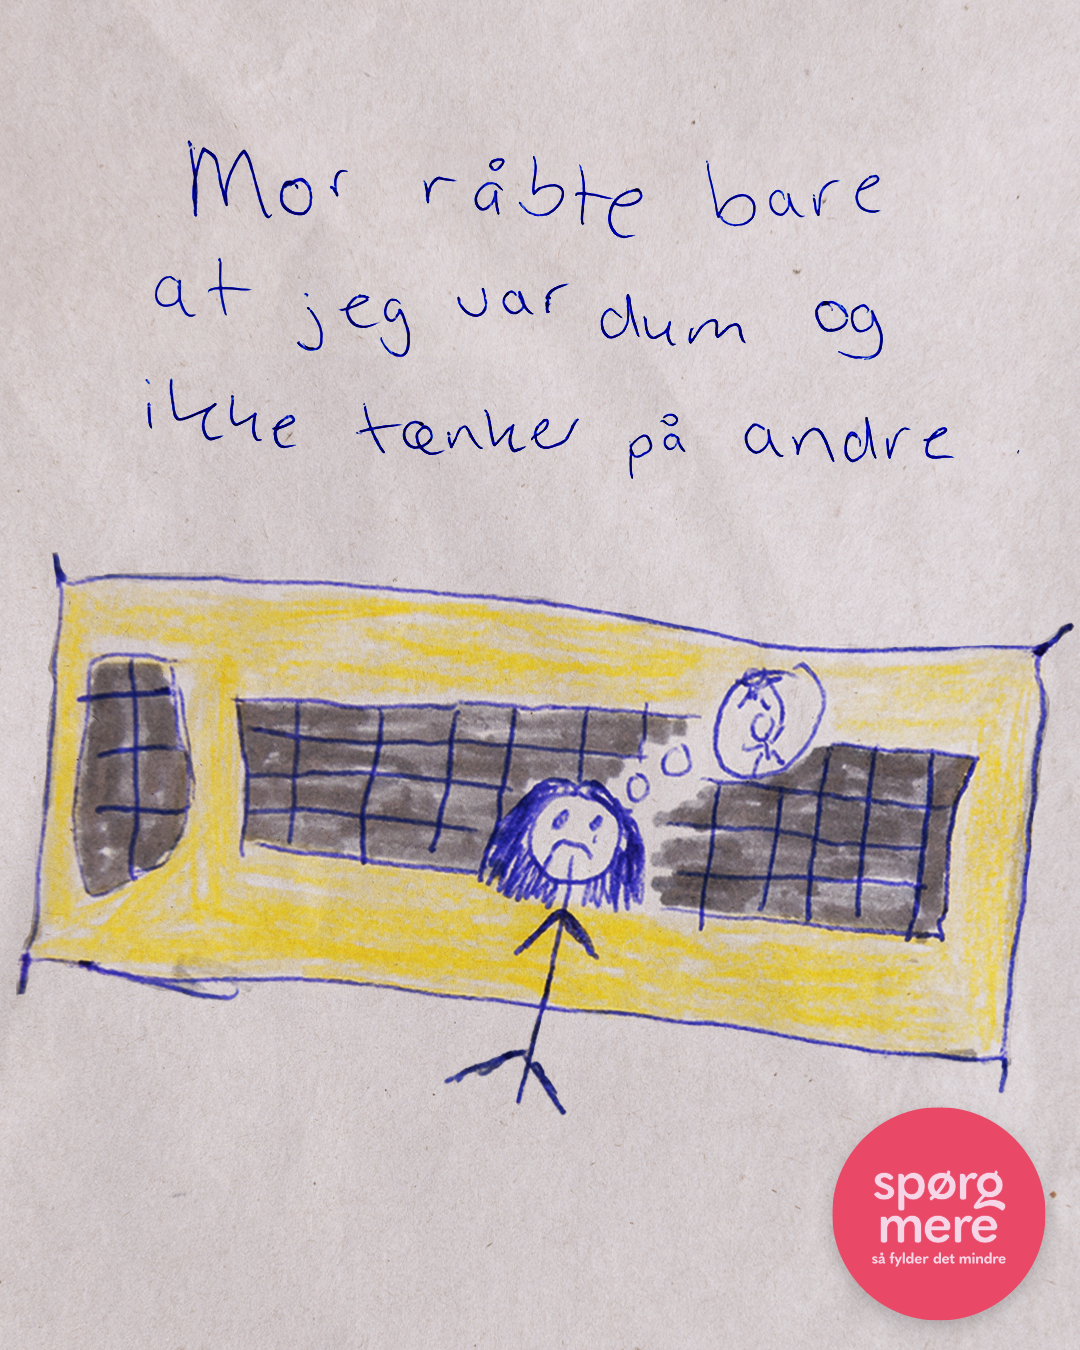 Mor råbte bare
at jeg var dum og
ikke tænker på andre.
spørg
mere
så fylder det mindre